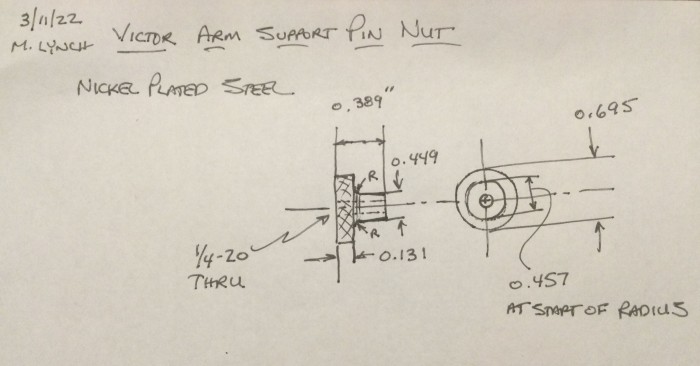 3/11/22
M. LYNCH
VICTOR ARM SUPPORT PIN NUT
NICKEL PLATED STEEL
0.389"
0.695
0.449
R
R
1/4-20
THRU
0.131
0.457
AT START OF RADIUS